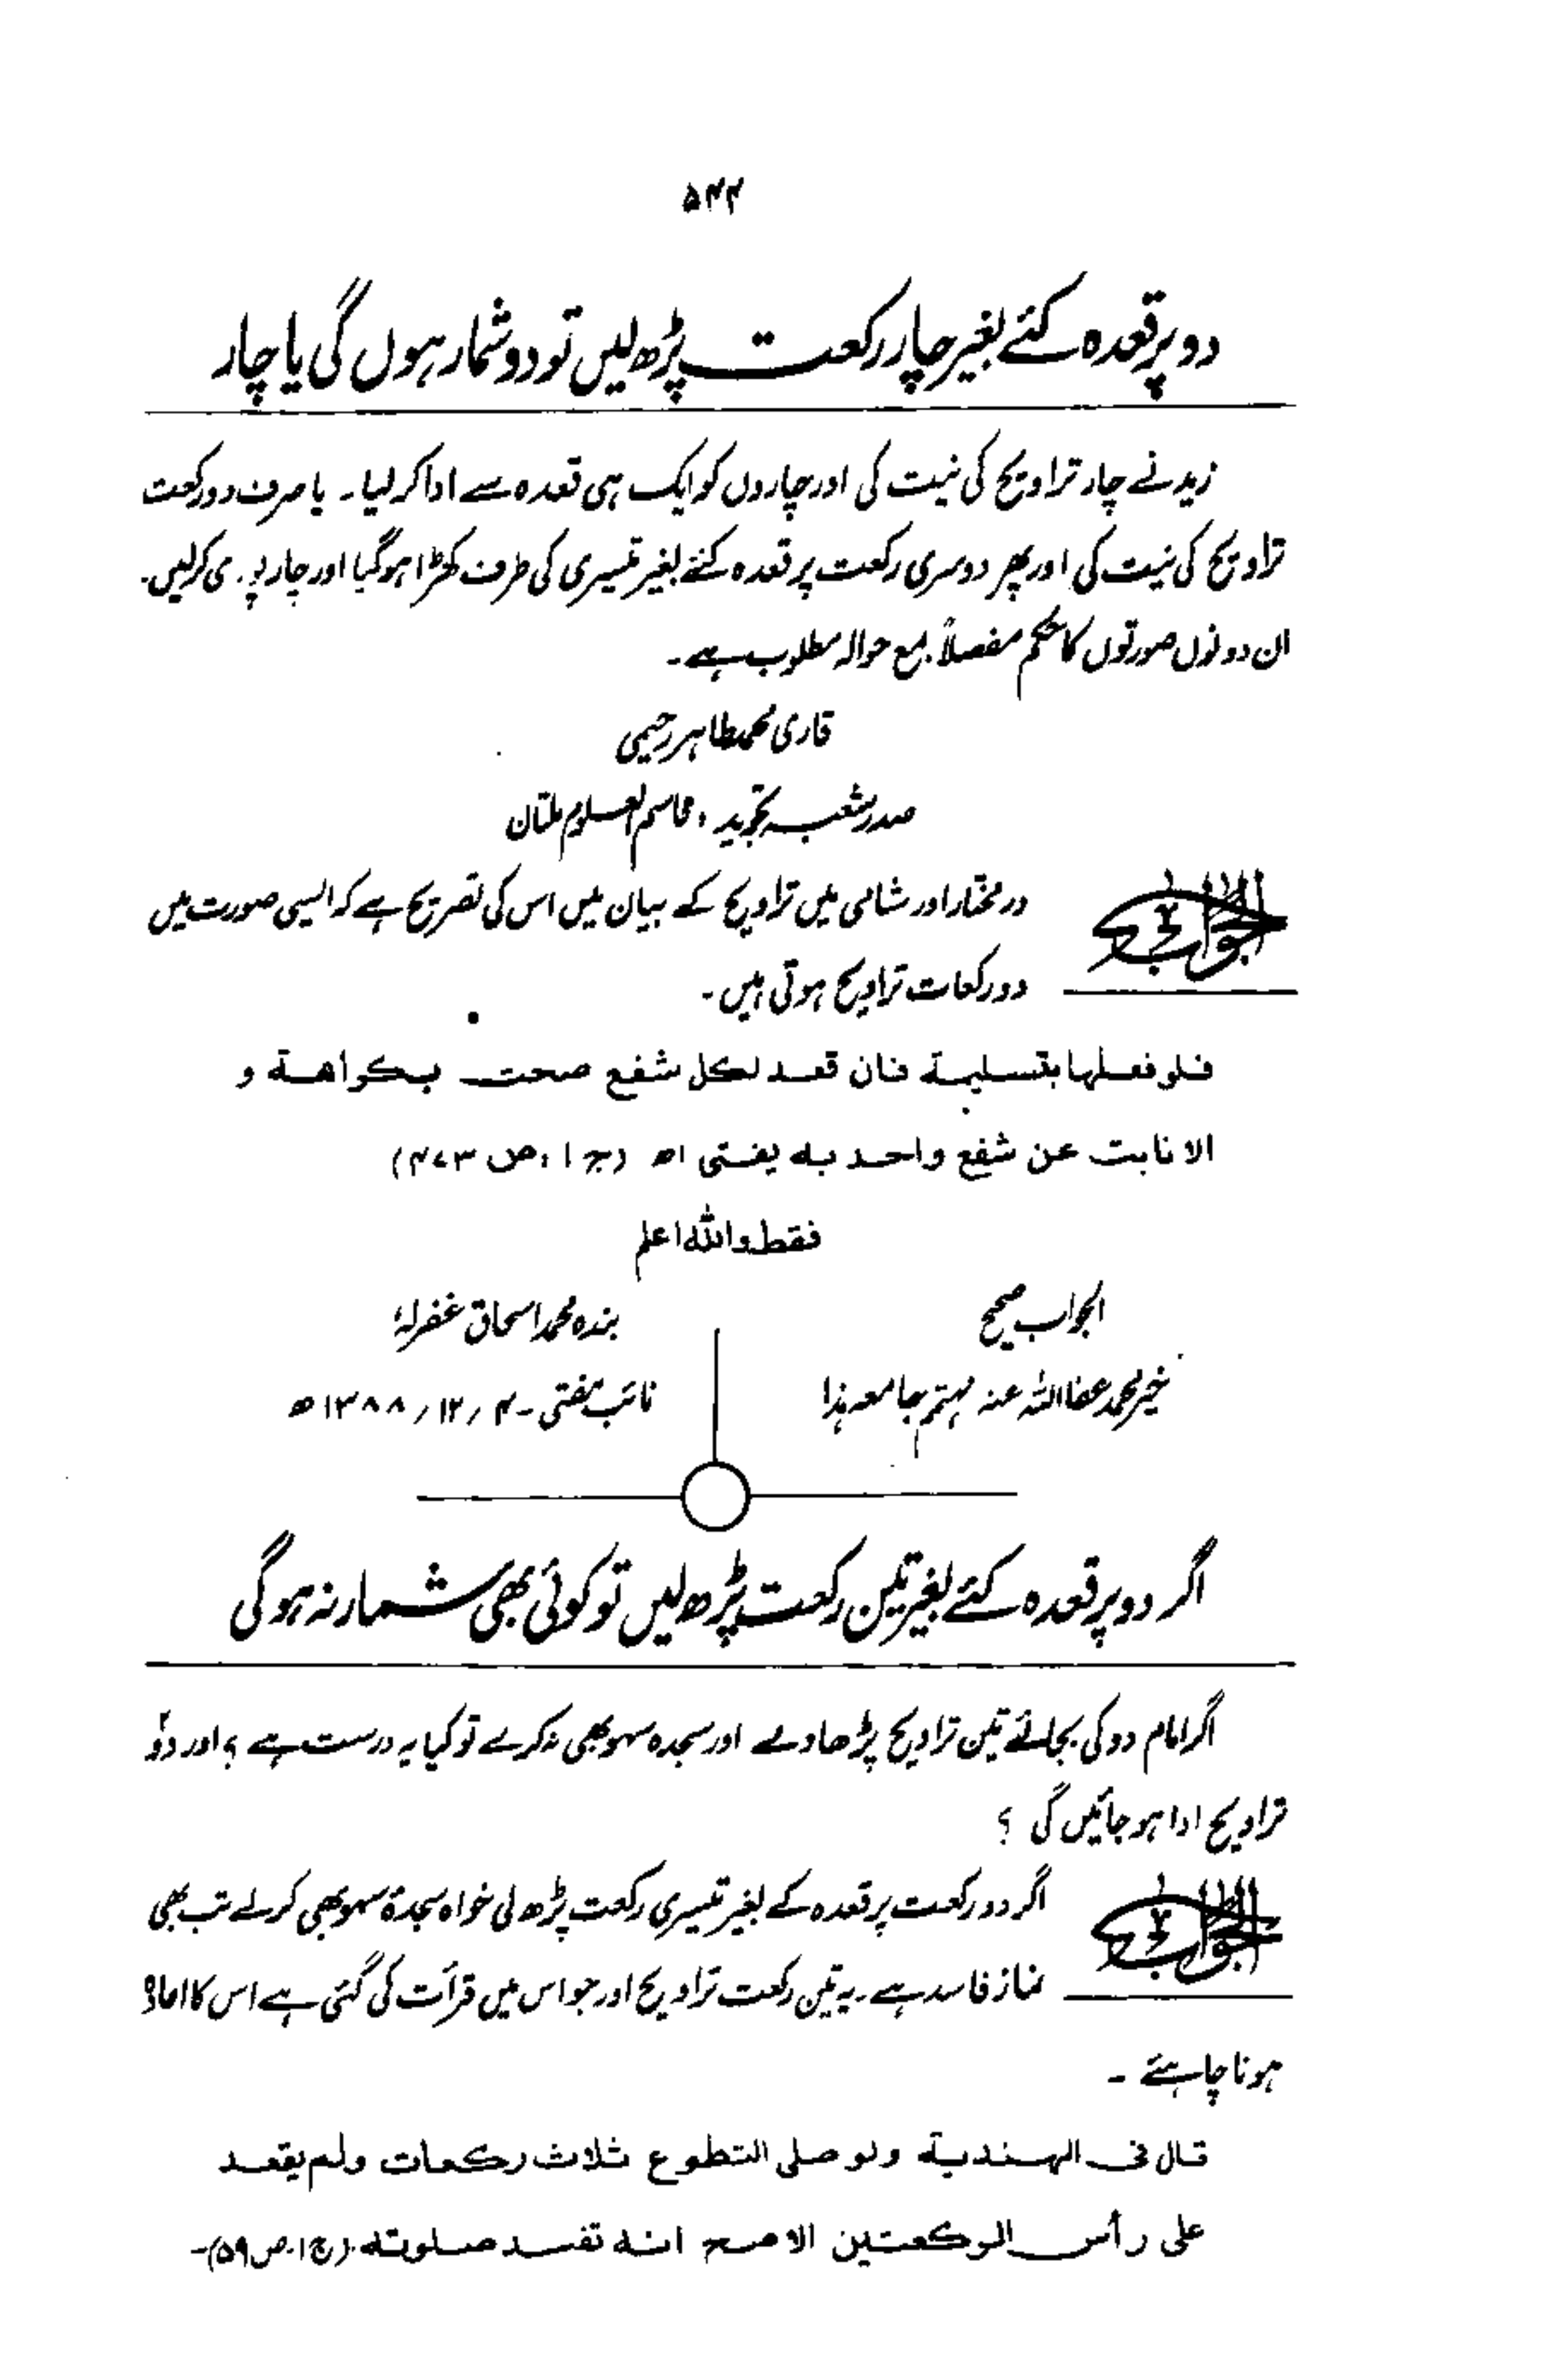 ۵۴۴
دو پر قعدہ کئے بغیر چار رکعت پڑھ لیں تو دو شمار ہوں گی یا چار
زید نے چار تراویح کی نیت کی اور چاروں کو ایک ہی قعدہ سے ادا کر لیا۔ یا صرف دو رکعت
تراویح کی نیت کی اور پھر دوسری رکعت پر قعدہ کئے بغیر تیسری کی طرف کھڑا ہو گیا اور چار پوری کرلیں۔
ان دونوں صورتوں کا حکم مفصلاً بمع حوالہ مطلوب ہے۔
قاری محمد طاہر رحیمی
صدر شعبہ تجوید، قاسم العلوم ملتان
الجواب
در مختار اور شامی میں تراویح کے بیان میں اس کی تصریح ہے کہ ایسی صورت میں
دو رکعات تراویح ہوتی ہیں۔
فلو فعلها بتسليمة فان قعد لكل شفع صحت بكراهة و
الا نابت عن شفع واحد به يفتى اھ (ج ۱، ص ۴۷۳)
فقط واللہ اعلم
الجواب صحیح
خیر محمد عفا اللہ عنہ مہتمم جامعہ ہذا
بندہ محمد اسحاق غفرلہٗ
نائب مفتی ۔ ۴/۱۲/۱۳۸۸ھ
اگر دو پر قعدہ کئے بغیر تین رکعت پڑھ لیں تو کوئی بھی شمار نہ ہوگی
اگر امام دو کی بجائے تین تراویح پڑھا دے اور سجدہ سہو بھی نہ کرے تو کیا یہ درست ہے؟ اور دو
تراویح ادا ہو جائیں گی ؟
الجواب
اگر دو رکعت پر قعدہ کے بغیر تیسری رکعت پڑھ لی خواہ سجدۂ سہو بھی کرلے تب بھی
نماز فاسد ہے۔ یہ تین رکعت تراویح اور جو اس میں قرأت کی گئی ہے اس کا اعادہ
ہونا چاہئے ۔
قال فى الهندية ولو صلى التطوع ثلاث ركعات ولم يقعد
على رأس الركعتين الاصح انه تفسد صلوته (ج ۱۔ ص ۵۹)۔